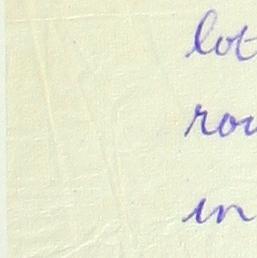 lot
rou
in